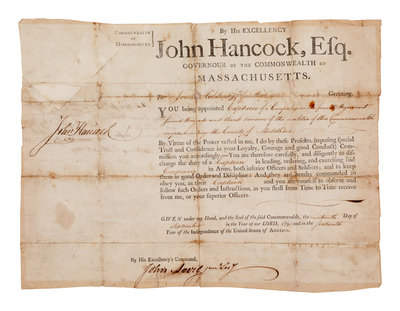 COMMONWEALTH
OF
MASSACHUSETTS.
By His EXCELLENCY
John Hancock, Eſq.
GOVERNOUR OF THE COMMONWEALTH OF
MASSACHUSETTS.
To Greeting.
YOU being appointed Captain of a Company in the Regiment
Brigade and third Division of the Militia of this Commonwealth
comprehending the County of Middlesex
John Hancock
By Virtue of the Power veſted in me, I do by theſe Preſents, (repoſing ſpecial
Truſt and Confidence in your Loyalty, Courage and good Conduct) Com-
miſſion you accordingly:—You are therefore carefully, and diligently to diſ-
charge the duty of a Captain in leading, ordering, and exerciſing ſaid
Company in Arms, both inferior Officers and Soldiers, and to keep
them in good Order and Diſcipline: And they are hereby commanded to
obey you, as their Captain and you are yourſelf to obſerve and
follow ſuch Orders and Inſtructions, as you ſhall from Time to Time receive
from me, or your ſuperior Officers.
GIVEN under my Hand, and the Seal of the ſaid Commonwealth, the Day of
September in the Year of our LORD, 1791 and in the ſixteenth
Year of the Independence of the UNITED STATES OF AMERICA.
By His Excellency's Command,
John Avery jun Secy